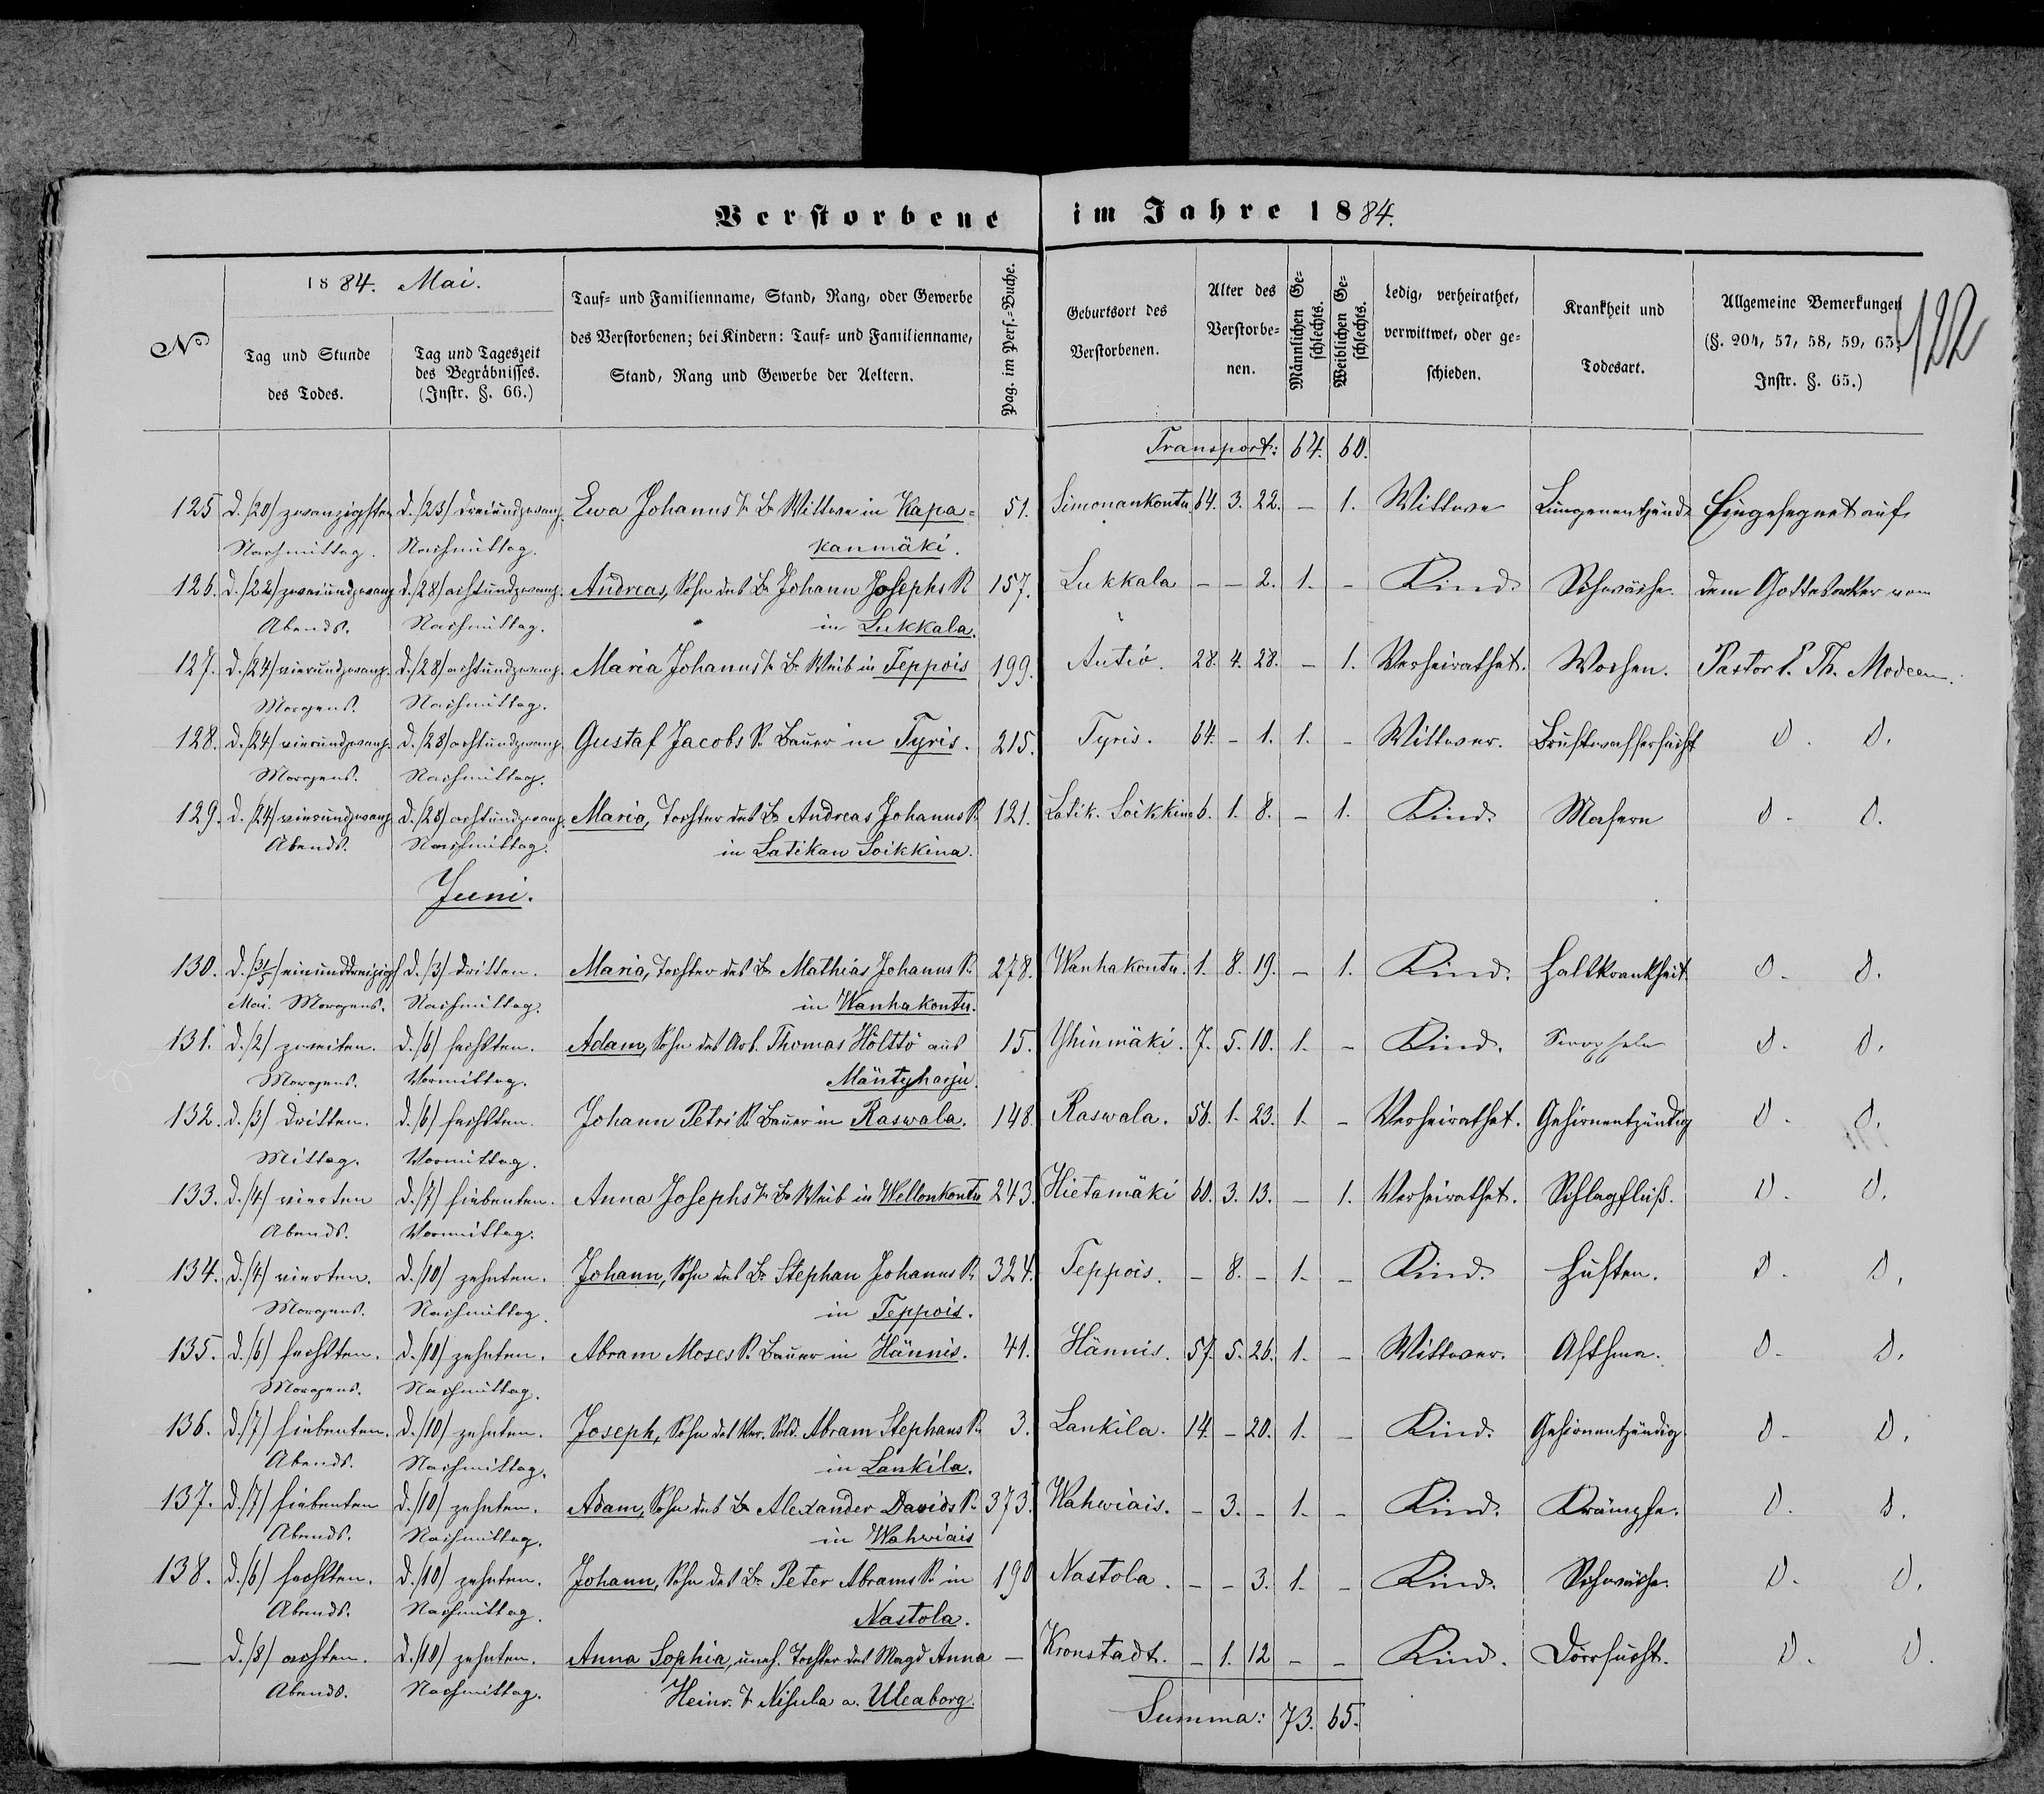 Verstorbene im Jahre 1884.
122
No
1884. Mai.
Tag und Stunde des Todes.
Tag und Tageszeit des Begräbnisses. (Instr. §. 66.)
Tauf- und Familienname, Stand, Rang, oder Gewerbe des Verstorbenen; bei Kindern: Tauf- und Familienname, Stand, Rang und Gewerbe der Aeltern.
Pag. im Pers.-Buche.
Geburtsort des Verstorbenen.
Alter des Verstorbenen.
Männlichen Geschlechts.
Weiblichen Geschlechts.
Ledig, verheirathet, verwittwet, oder geschieden.
Krankheit und Todesart.
Allgemeine Bemerkungen (§. 204, 57, 58, 59, 63; Instr. §. 65.)
Transport: 64. 60.
125 d. /20/ zwanzigsten d. /23/ dreiundzwanz. Ewa Johanns T. Br Wittwe in Kapa- 51. Simonankontu 64. 3. 22. – 1. Wittwe Lungenentzünd. Eingesegnet auf
Nachmittag. Nachmittag. kanmäki.
126. d. /22/ zweiundzwanz d. /28/ achtundzwanz. Andreas, Sohn des Br Johann Josephs S. 157. Lukkala – – 2. 1. – Kind. Schwäche. dem Gottesacker vom
Abends. Nachmittag. in Lukkala.
127. d. /24/ vierundzwanz. d. /28/ achtundzwanz. Maria Johanns T. Br Weib in Teppois 199. Autio. 28. 4. 28. – 1. Verheirathet. Wochen. Pastor P. Th. Modeen.
Morgens. Nachmittag.
128. d. /24/ vierundzwanz. d. /28/ achtundzwanz. Gustaf Jacobs S. Bauer in Tyris. 215. Tyris. 64. – 1. 1. – Wittwer. Brustwassersucht D. D.
Morgens. Nachmittag.
129. d. /24/ vierundzwanz d. /28/ achtundzwanz. Maria, Tochter des Br Andreas Johanns S. 121. Latik. Soikkina 6. 1. 8. – 1. Kind. Masern D. D.
Abends. Nachmittag. in Latikan Soikkina.
Juni.
130. d. /31/5/ einunddreizigst d. /3/ dritten. Maria, Tochter des Br Mathias Johanns S. 278. Wanhakontu. 1. 8. 19. – 1. Kind. Halskrankheit D. D.
Mai. Morgens. Nachmittag. in Wanhakontu.
131. d. /2/ zweiten. d. /6/ sechsten. Adam, Sohn des Arb. Thomas Hölttö aus 15. Yhinmäki. 7. 5. 10. 1. – Kind. D. D.
Morgens. Vormittag. Mäntyharju.
132. d. /3/ dritten. d. /6/ sechsten. Johann Petri S. Bauer in Raswala. 148. Raswala. 56. 1. 23. 1. – Verheirathet. Gehirnentzündig D. D.
Mittag. Vormittag.
133. d. /4/ vierten d. /7/ siebenten. Anna Josephs T. Br Weib in Wellonkontu 243. Hietamäki 60. 3. 13. – 1. Verheirathet. Schlagfluß. D. D.
Abends. Vormittag.
134. d. /4/ vierten. d. /10/ zehnten. Johann, Sohn des Br Stephan Johanns S. 324. Teppois. – 8. – 1. – Kind. Husten. D. D.
Morgens. Nachmittag. in Teppois.
135. d. /6/ sechsten. d. /10/ zehnten. Abram Moses S. Bauer in Hännis. 41. Hännis. 57. 5. 26. 1. – Wittwer. Asthma. D. D.
Morgens. Nachmittag.
136. d. /7/ siebenten. d. /10/ zehnten. Joseph, Sohn des Ver. Sold. Abram Stephans S. 3. Lankila. 14. – 20. 1. – Kind. Gehirnentzündig. D. D.
Abends. Nachmittag. in Lankila.
137. d. /7/ siebenten d. /10/ zehnten. Adam, Sohn des Br Alexander Davids S. 373. Wahwiais. – 3. – 1. – Kind. Krämpfe. D. D.
Abends. Nachmittag. in Wahwiais
138. d. /6/ sechsten. d. /10/ zehnten. Johann, Sohn des Br Peter Abrams S. in 190 Nastola. – – 3. 1. – Kind. Schwäche. D. D.
Abends. Nachmittag. Nastola.
— d. /8/ achten. d. /10/ zehnten. Anna Sophia, uneh. Tochter der Magd Anna – Kronstadt. – 1. 12 – – Kind. Dörrsucht. D. D.
Abends. Nachmittag. Heinr. T. Nisula a. Uleaborg.
Summa: 73. 65.